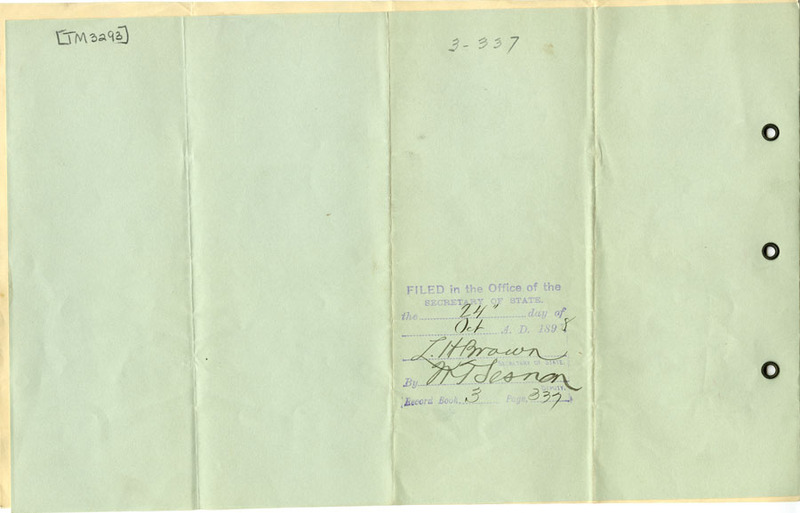 [TM3293]
3-337
FILED in the Office of the
SECRETARY OF STATE.
the 24" day of
Oct A. D. 1898
L. H. Brown
SECRETARY OF STATE.
By W T Sesnon
DEPUTY.
(Record Book 3 Page 337)